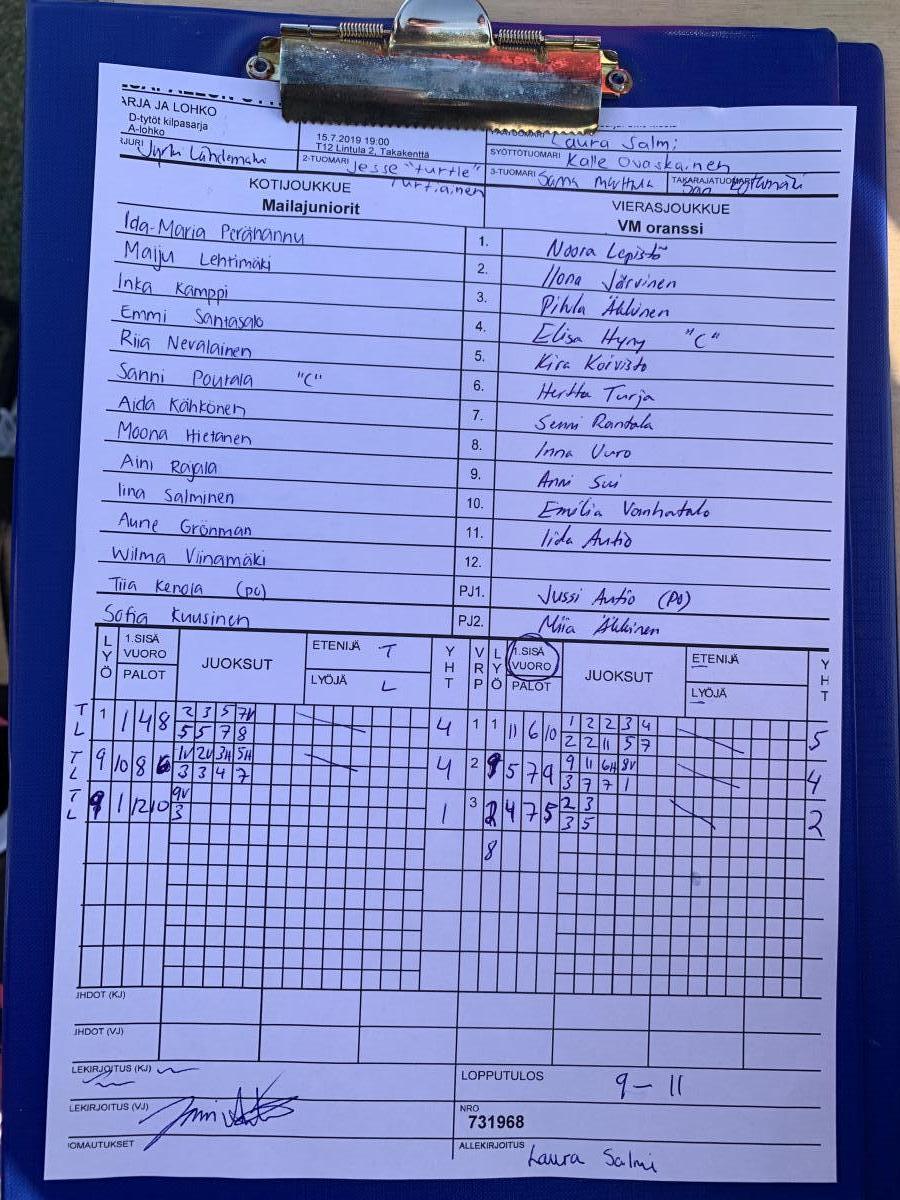 ARJA JA LOHKO
D-tytöt kilpasarja
A-lohko
15.7.2019 19:00
T12 Lintula 2, Takakenttä
Laura Salmi
SYÖTTÖTUOMARI Kalle Ovaskainen
2-TUOMARI Jesse "turtle" Turtiainen
3-TUOMARI
TAKARAJATUOMARI
KOTIJOUKKUE
Mailajuniorit
VIERASJOUKKUE
VM oranssi
Ida-Maria Perähannu 1. Noora Lepistö
Maiju Lehtimäki 2. Ilona Järvinen
Inka Kamppi 3. Pihla Äkkinen
Emmi Santasalo 4. Elisa Hyry "C"
Riia Nevalainen 5. Kira Koivisto
Sanni Poutala "C" 6. Hertta Turja
Aida Kähkönen 7. Senni Rantala
Moona Hietanen 8. Inna Uuro
Aini Rajala 9. Anni Sui
Iina Salminen 10. Emilia Vanhatalo
Aune Grönman 11. Iida Autio
Wilma Viinamäki 12.
Tiia Kenola (po) PJ1. Jussi Autio (Po)
Sofia Kuusinen PJ2. Miia Äkkinen
LYÖ 1.SISÄ VUORO PALOT JUOKSUT ETENIJÄ T LYÖJÄ L YHT VRP LYÖ 1.SISÄ VUORO PALOT JUOKSUT ETENIJÄ LYÖJÄ YHT
T 1 1 4 8 2 3 5 7V 4 1 1 11 6 10 1 2 2 3 4 5
L 5 5 7 8 2 2 11 5 7
T 9 10 8 6 1V 2V 3H 5H 4 2 9 5 7 9 9 11 6H 8V 4
L 3 3 4 7 3 7 7 1
T 9 1 12 10 9V 1 3 2 4 7 5 2 3 2
L 3 3 5
8
JHDOT (KJ)
JHDOT (VJ)
LEKIRJOITUS (KJ)
LOPPUTULOS 9-11
LEKIRJOITUS (VJ)
NRO
731968
OMAUTUKSET
ALLEKIRJOITUS Laura Salmi